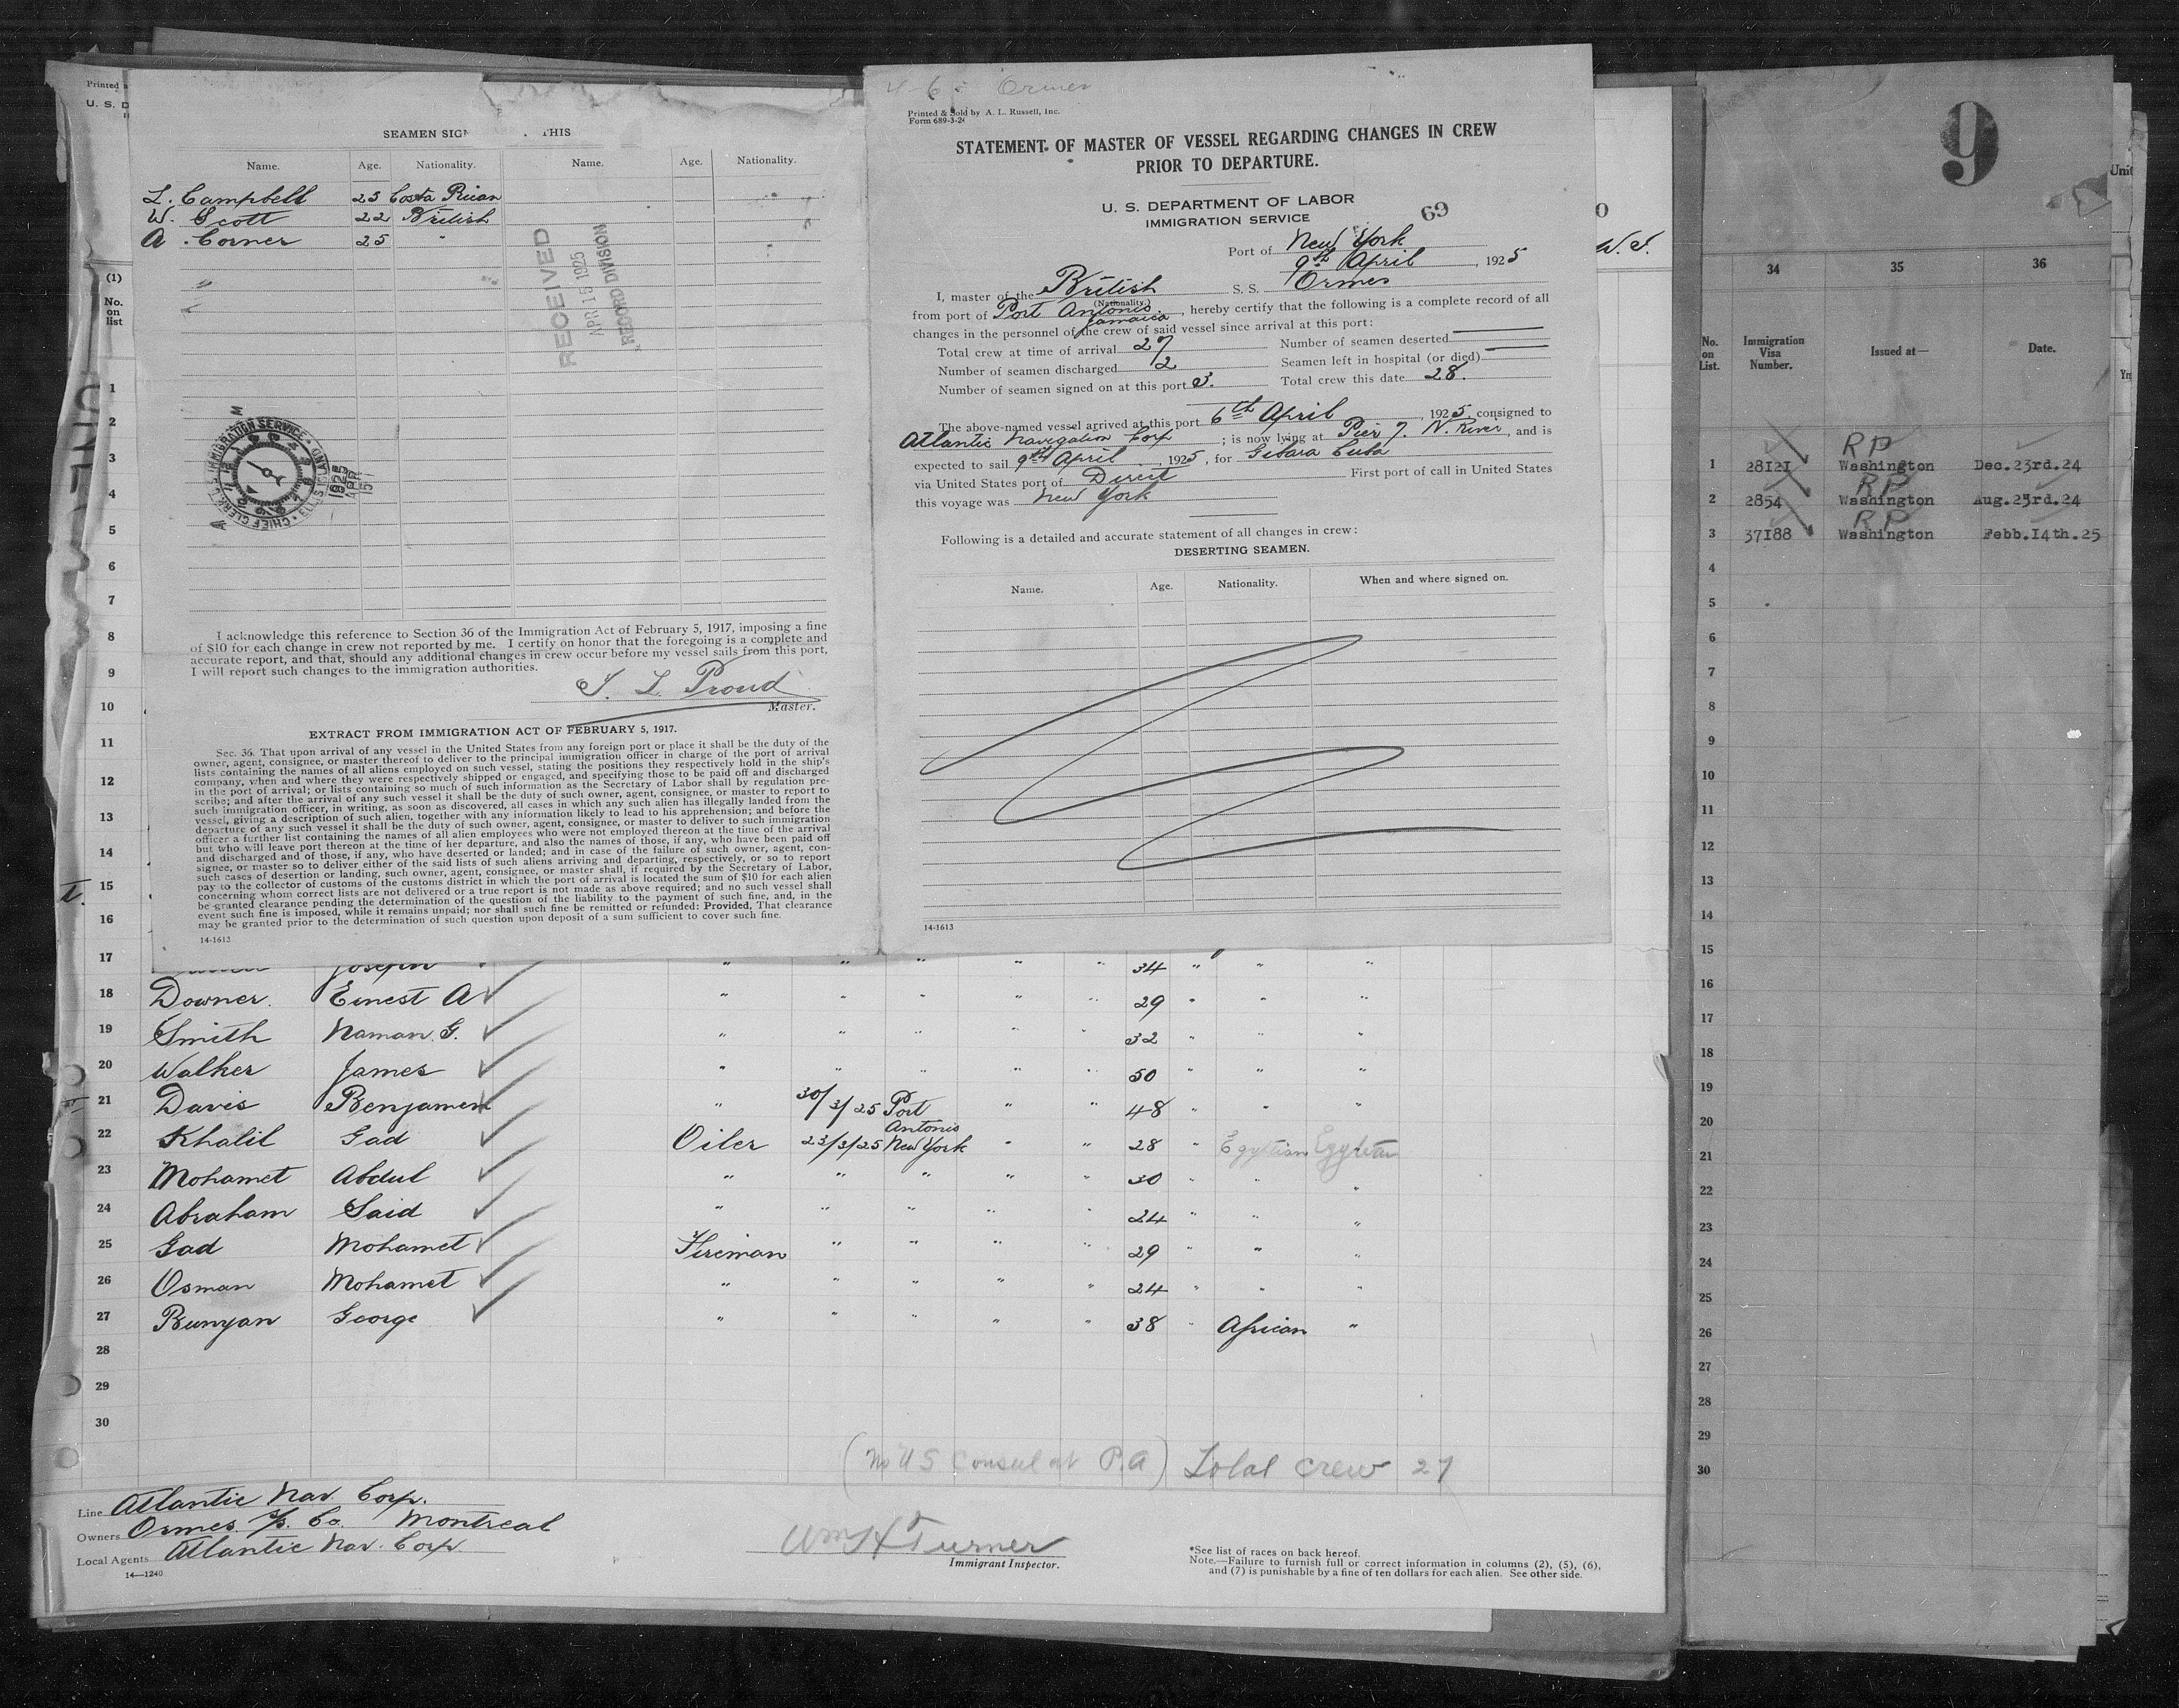 Printed
U. S. D
SEAMEN SIGN THIS
Name. Age. Nationality. Name. Age. Nationality.
L. Campbell 23 Costa Rican
W. Scott 22 British
A. Corner 25 "
RECEIVED
APR 15 1925
RECORD DIVISION
CHIEF CLERK U. S. IMMIGRATION SERVICE
1925 APR 15
I acknowledge this reference to Section 36 of the Immigration Act of February 5, 1917, imposing a fine
of $10 for each change in crew not reported by me. I certify on honor that the foregoing is a complete and
accurate report, and that, should any additional changes in crew occur before my vessel sails from this port,
I will report such changes to the immigration authorities.
L. Proud
Master.
EXTRACT FROM IMMIGRATION ACT OF FEBRUARY 5, 1917.
Sec. 36. That upon arrival of any vessel in the United States from any foreign port or place it shall be the duty of the
owner, agent, consignee, or master thereof to deliver to the principal immigration officer in charge of the port of arrival
lists containing the names of all aliens employed on such vessel, stating the positions they respectively hold in the ship's
company, when and where they were respectively shipped or engaged, and specifying those to be paid off and discharged
in the port of arrival; or lists containing so much of such information as the Secretary of Labor shall by regulation pre-
scribe; and after the arrival of any such vessel it shall be the duty of such owner, agent, consignee, or master to report to
such immigration officer, in writing, as soon as discovered, all cases in which any such alien has illegally landed from the
vessel, giving a description of such alien, together with any information likely to lead to his apprehension; and before the
departure of any such vessel it shall be the duty of such owner, agent, consignee, or master to deliver to such immigration
officer a further list containing the names of all alien employees who were not employed thereon at the time of the arrival
but who will leave port thereon at the time of her departure, and also the names of those, if any, who have been paid off
and discharged and of those, if any, who have deserted or landed; and in case of the failure of such owner, agent, con-
signee, or master so to deliver either of the said lists of such aliens arriving and departing, respectively, or so to report
such cases of desertion or landing, such owner, agent, consignee, or master shall, if required by the Secretary of Labor,
pay to the collector of customs of the customs district in which the port of arrival is located the sum of $10 for each alien
concerning whom correct lists are not delivered or a true report is not made as above required; and no such vessel shall
be granted clearance pending the determination of the question of the liability to the payment of such fine, and, in the
event such fine is imposed, while it remains unpaid; nor shall such fine be remitted or refunded: Provided, That clearance
may be granted prior to the determination of such question upon deposit of a sum sufficient to cover such fine.
14-1613
Ormes
Printed & Sold by A. L. Russell, Inc.
Form 689-3-24
STATEMENT OF MASTER OF VESSEL REGARDING CHANGES IN CREW
PRIOR TO DEPARTURE.
U. S. DEPARTMENT OF LABOR
IMMIGRATION SERVICE
69
Port of New York
9th April, 1925
I, master of the British S. S. Ormes
(Nationality.)
from port of Port Antonio Jamaica, hereby certify that the following is a complete record of all
changes in the personnel of the crew of said vessel since arrival at this port:
Total crew at time of arrival 27 Number of seamen deserted
Number of seamen discharged 2 Seamen left in hospital (or died)
Number of seamen signed on at this port 3. Total crew this date 28.
The above-named vessel arrived at this port 6th April, 1925, consigned to
Atlantic Navigation Corp; is now lying at Pier 7. N. River, and is
expected to sail 9th April, 1925, for Gibara Cuba
via United States port of Direct First port of call in United States
this voyage was New York
Following is a detailed and accurate statement of all changes in crew:
DESERTING SEAMEN.
Name. Age. Nationality. When and where signed on.
14-1613
W. I.
(1)
No. on list
1
2
3
4
5
6
7
8
9
10
11
12
13
14
15
16
17 Joseph " " " " " 34 " " "
18 Downer Ernest A " " " " " 29 " " "
19 Smith Naman G. " " " " " 32 " " "
20 Walker James " " " " " 50 " " "
21 Davis Benjamen " 30/3/25 Port Antonio " " 48 " " "
22 Khalil Gad Oiler 23/3/25 New York " " 28 " Egyptian Egyptian
23 Mohamet Abdul " " " " " 30 " " "
24 Abraham Said " " " " " 24 " " "
25 Gad Mohamet Fireman " " " " 29 " " "
26 Osman Mohamet " " " " " 24 " " "
27 Bunyan George " " " " " 38 " African "
28
29
30
(No US Consul at P.A) Total crew 27
Line Atlantic Nav. Corp.
Owners Ormes S/S. Co. Montreal
Local Agents Atlantic Nav. Corp
14—1240
Wm H Turner
Immigrant Inspector.
*See list of races on back hereof.
Note.—Failure to furnish full or correct information in columns (2), (5), (6),
and (7) is punishable by a fine of ten dollars for each alien. See other side.
9
Unit
34 35 36
No. on List. Immigration Visa Number. Issued at— Date.
RP
1 28121 Washington Dec.23rd.24
RP
2 2854 Washington Aug.23rd.24
RP
3 37188 Washington Febb.14th.25
4
5
6
7
8
9
10
11
12
13
14
15
16
17
18
19
20
21
22
23
24
25
26
27
28
29
30